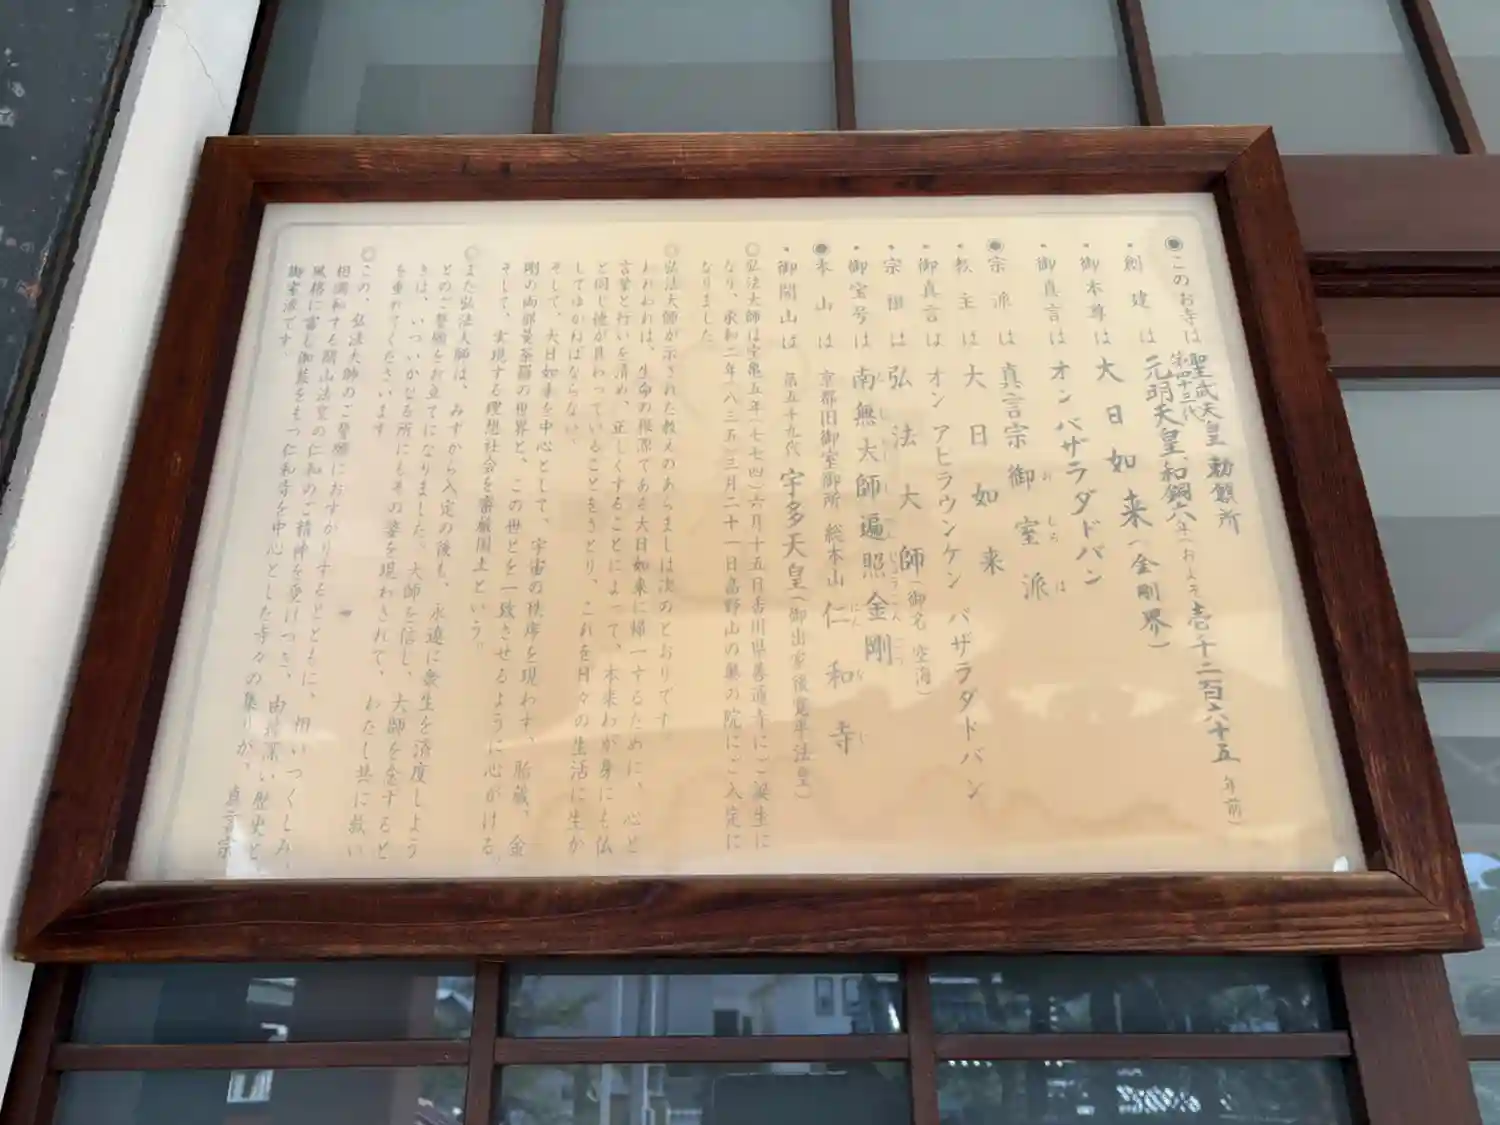 ◉このお寺は 聖武天皇 勅願所
第四十三代
・創建は 元明天皇和銅六年(およそ壱千二百六十五年前)
・御本尊は 大日如来(金剛界)
・御真言は オンバザラダドバン
◉宗派は 真言宗御室派
・教主は 大日如来
・御真言は オンアビラウンケンバザラダドバン
・宗祖は 弘法大師(御名 空海)
・御宝号は 南無大師遍照金剛
◉本山は 京都旧御室御所 総本山 仁和寺
・御開山は 第五十九代 宇多天皇(御出家後寛平法皇)
◎弘法大師は宝亀五年(七七四)六月十五日香川県善通寺にご誕生に
なり、承和二年(八三五)三月二十一日高野山の奥の院にご入定に
なりました
◎弘法大師が示された教えのあらましは次のとおりです
われわれは、生命の根源である大日如来に帰一するために、心と
言葉と行いを清め、正しくすることによって、本来わが身にも仏
と同じ徳が具わっていることをさとり、これを日々の生活に生か
してゆかねばならない。
そして、大日如来を中心として、宇宙の秩序を現わす、胎蔵、金
剛の両部曼荼羅の世界と、この世とを一致させるように心がける。
そして、実現する理想社会を密厳国土という。
◎また弘法大師は、みずから入定の後も、永遠に衆生を済度しよう
とのご誓願をお立てになりました。大師を信じ、大師を念ずると
きは、いついかなる所にもその姿を現わされて、わたし共に救い
を垂れてくださいます
◎この、弘法大師のご誓願におすがりするとともに、相いつくしみ、
相調和する開山法皇の仁和のご精神を受けつぎ、由緒深い歴史と、
風格に富む伽藍をもつ仁和寺を中心とした寺々の集りが、真言宗
御室派です。